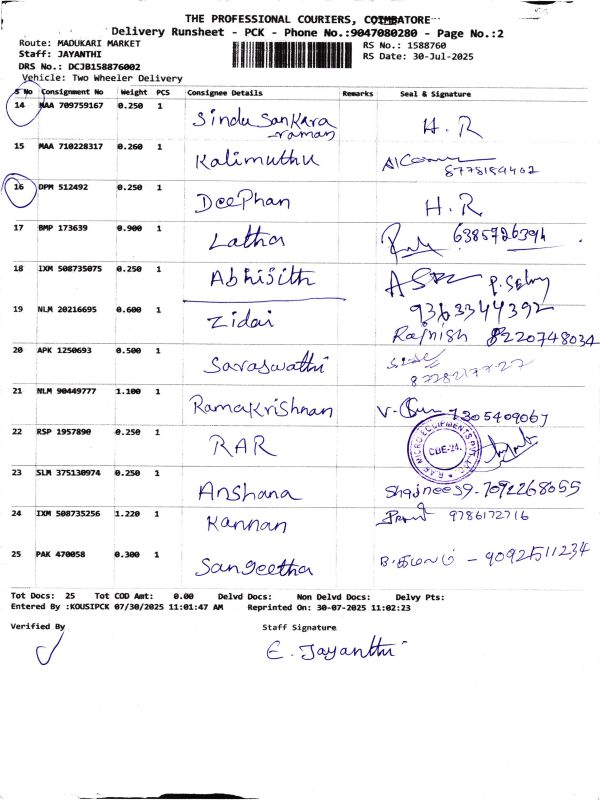 THE PROFESSIONAL COURIERS, COIMBATORE
Delivery Runsheet - PCK - Phone No.:9047080280 - Page No.:2
Route: MADUKARI MARKET
RS No.: 1588760
Staff: JAYANTHI
RS Date: 30-Jul-2025
DRS No.: DCJB158876002
Vehicle: Two Wheeler Delivery
S No Consignment No Weight PCS Consignee Details Remarks Seal & Signature
14 MAA 709759167 0.250 1 Sindu Sankara raman H.R
15 MAA 710228317 0.260 1 Kalimuthu
16 DPM 512492 0.250 1 Deephan H.R
17 BMP 173639 0.900 1 Latha
18 IXM 508735075 0.250 1 Abhijith
9363344392
19 NLM 20216695 0.600 1 Zidai Rajnish 8220748034
20 APK 1250693 0.500 1 Saraswathi
21 NLM 90449777 1.100 1 Ramakrishnan 7305409067
22 RSP 1957890 0.250 1 RAR CBE-24.
23 SLM 375130974 0.250 1 Anshana 7092268055
24 IXM 508735256 1.220 1 Kannan 9786172716
25 PAK 470058 0.300 1 Sangeetha - 9092511234
Tot Docs: 25 Tot COD Amt: 0.00 Delvd Docs: Non Delvd Docs: Delvy Pts:
Entered By :KOUSIPCK 07/30/2025 11:01:47 AM Reprinted On: 30-07-2025 11:02:23
Verified By Staff Signature
E. Jayanthi